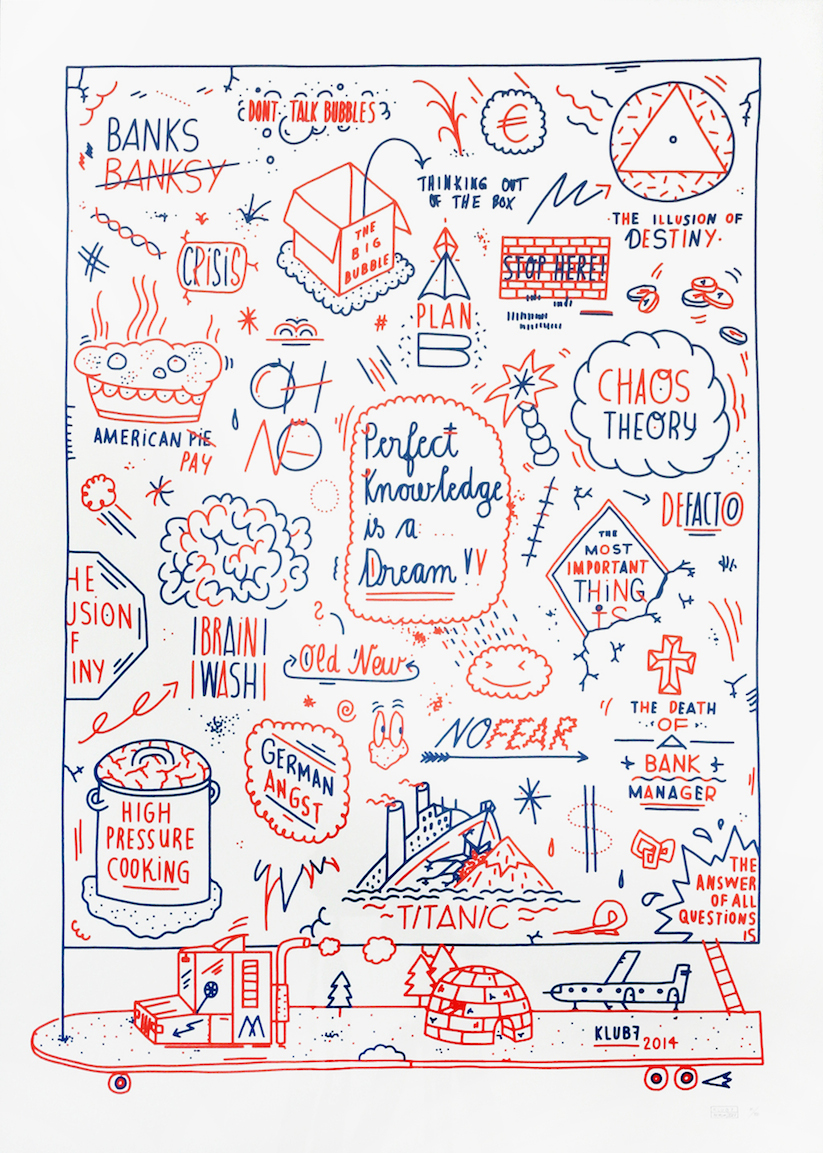 BANKS
BANKSY
DONT TALK BUBBLES
€
THINKING OUT
OF THE BOX
THE
BIG
BUBBLE
THE ILLUSION OF
DESTINY.
CRISIS
STOP HERE!
PLAN
B
#
OH
NO
AMERICAN PIE
PAY
CHAOS
THEORY
Perfect
Knowledge
is a
Dream!
DEFACTO
THE
MOST
IMPORTANT
THING
IS
HE
USION
F
INY
BRAIN
WASH
Old New
THE DEATH
OF
A
BANK
MANAGER
NO FEAR
GERMAN
ANGST
HIGH
PRESSURE
COOKING
TITANIC
$
THE
ANSWER
OF ALL
QUESTIONS
IS
KLUB7 2014